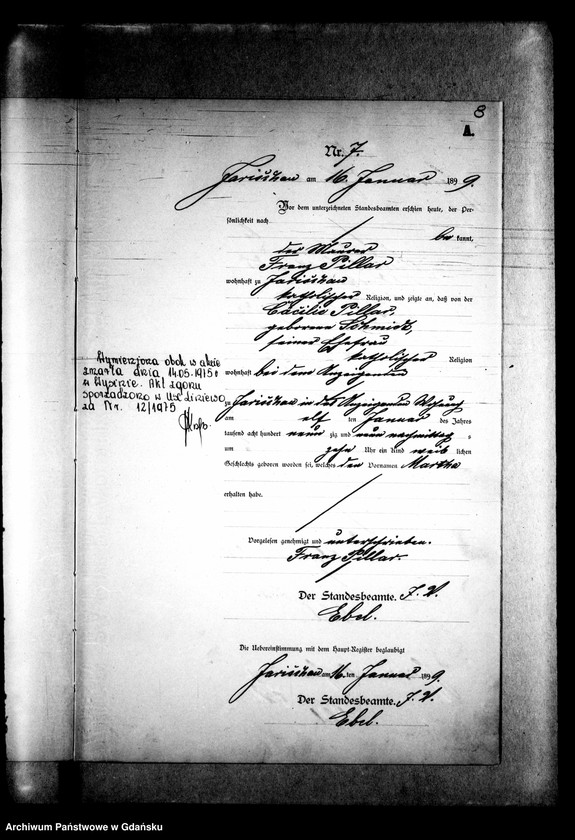 8
A.
Nr. 7.
Jarischau am 16. Januar 1899.
Vor dem unterzeichneten Standesbeamten erschien heute, der Per-
sönlichkeit nach
be kannt,
der Maurer
Franz Pillar
wohnhaft zu Jarischau
katholischer Religion, und zeigte an, daß von der
Cäcilie Pillar,
geborene Schmidt,
seiner Ehefrau
katholischer Religion
wohnhaft bei dem Anzeigenden
zu Jarischau in des Anzeigenden Wohnung
am elf ten Januar des Jahres
tausend acht hundert neun zig und neun nachmittag s
um zehn Uhr ein Kind weib lichen
Geschlechts geboren worden sei, welches den Vornamen Martha
erhalten habe.
Vorgelesen genehmigt und unterschrieben.
Franz Pillar.
Der Standesbeamte. J. V.
Ebel.
Die Uebereinstimmung mit dem Haupt-Register beglaubigt
Jarischau am 16. ten Januar 1899.
Der Standesbeamte. J. V.
Ebel.
Wymieniona obok w akcie
zmarła dnia 14.05.1975 r
w . Akt zgonu
sporządzono w USC
za Nr. 12/1975
Archiwum Państwowe w Gdańsku